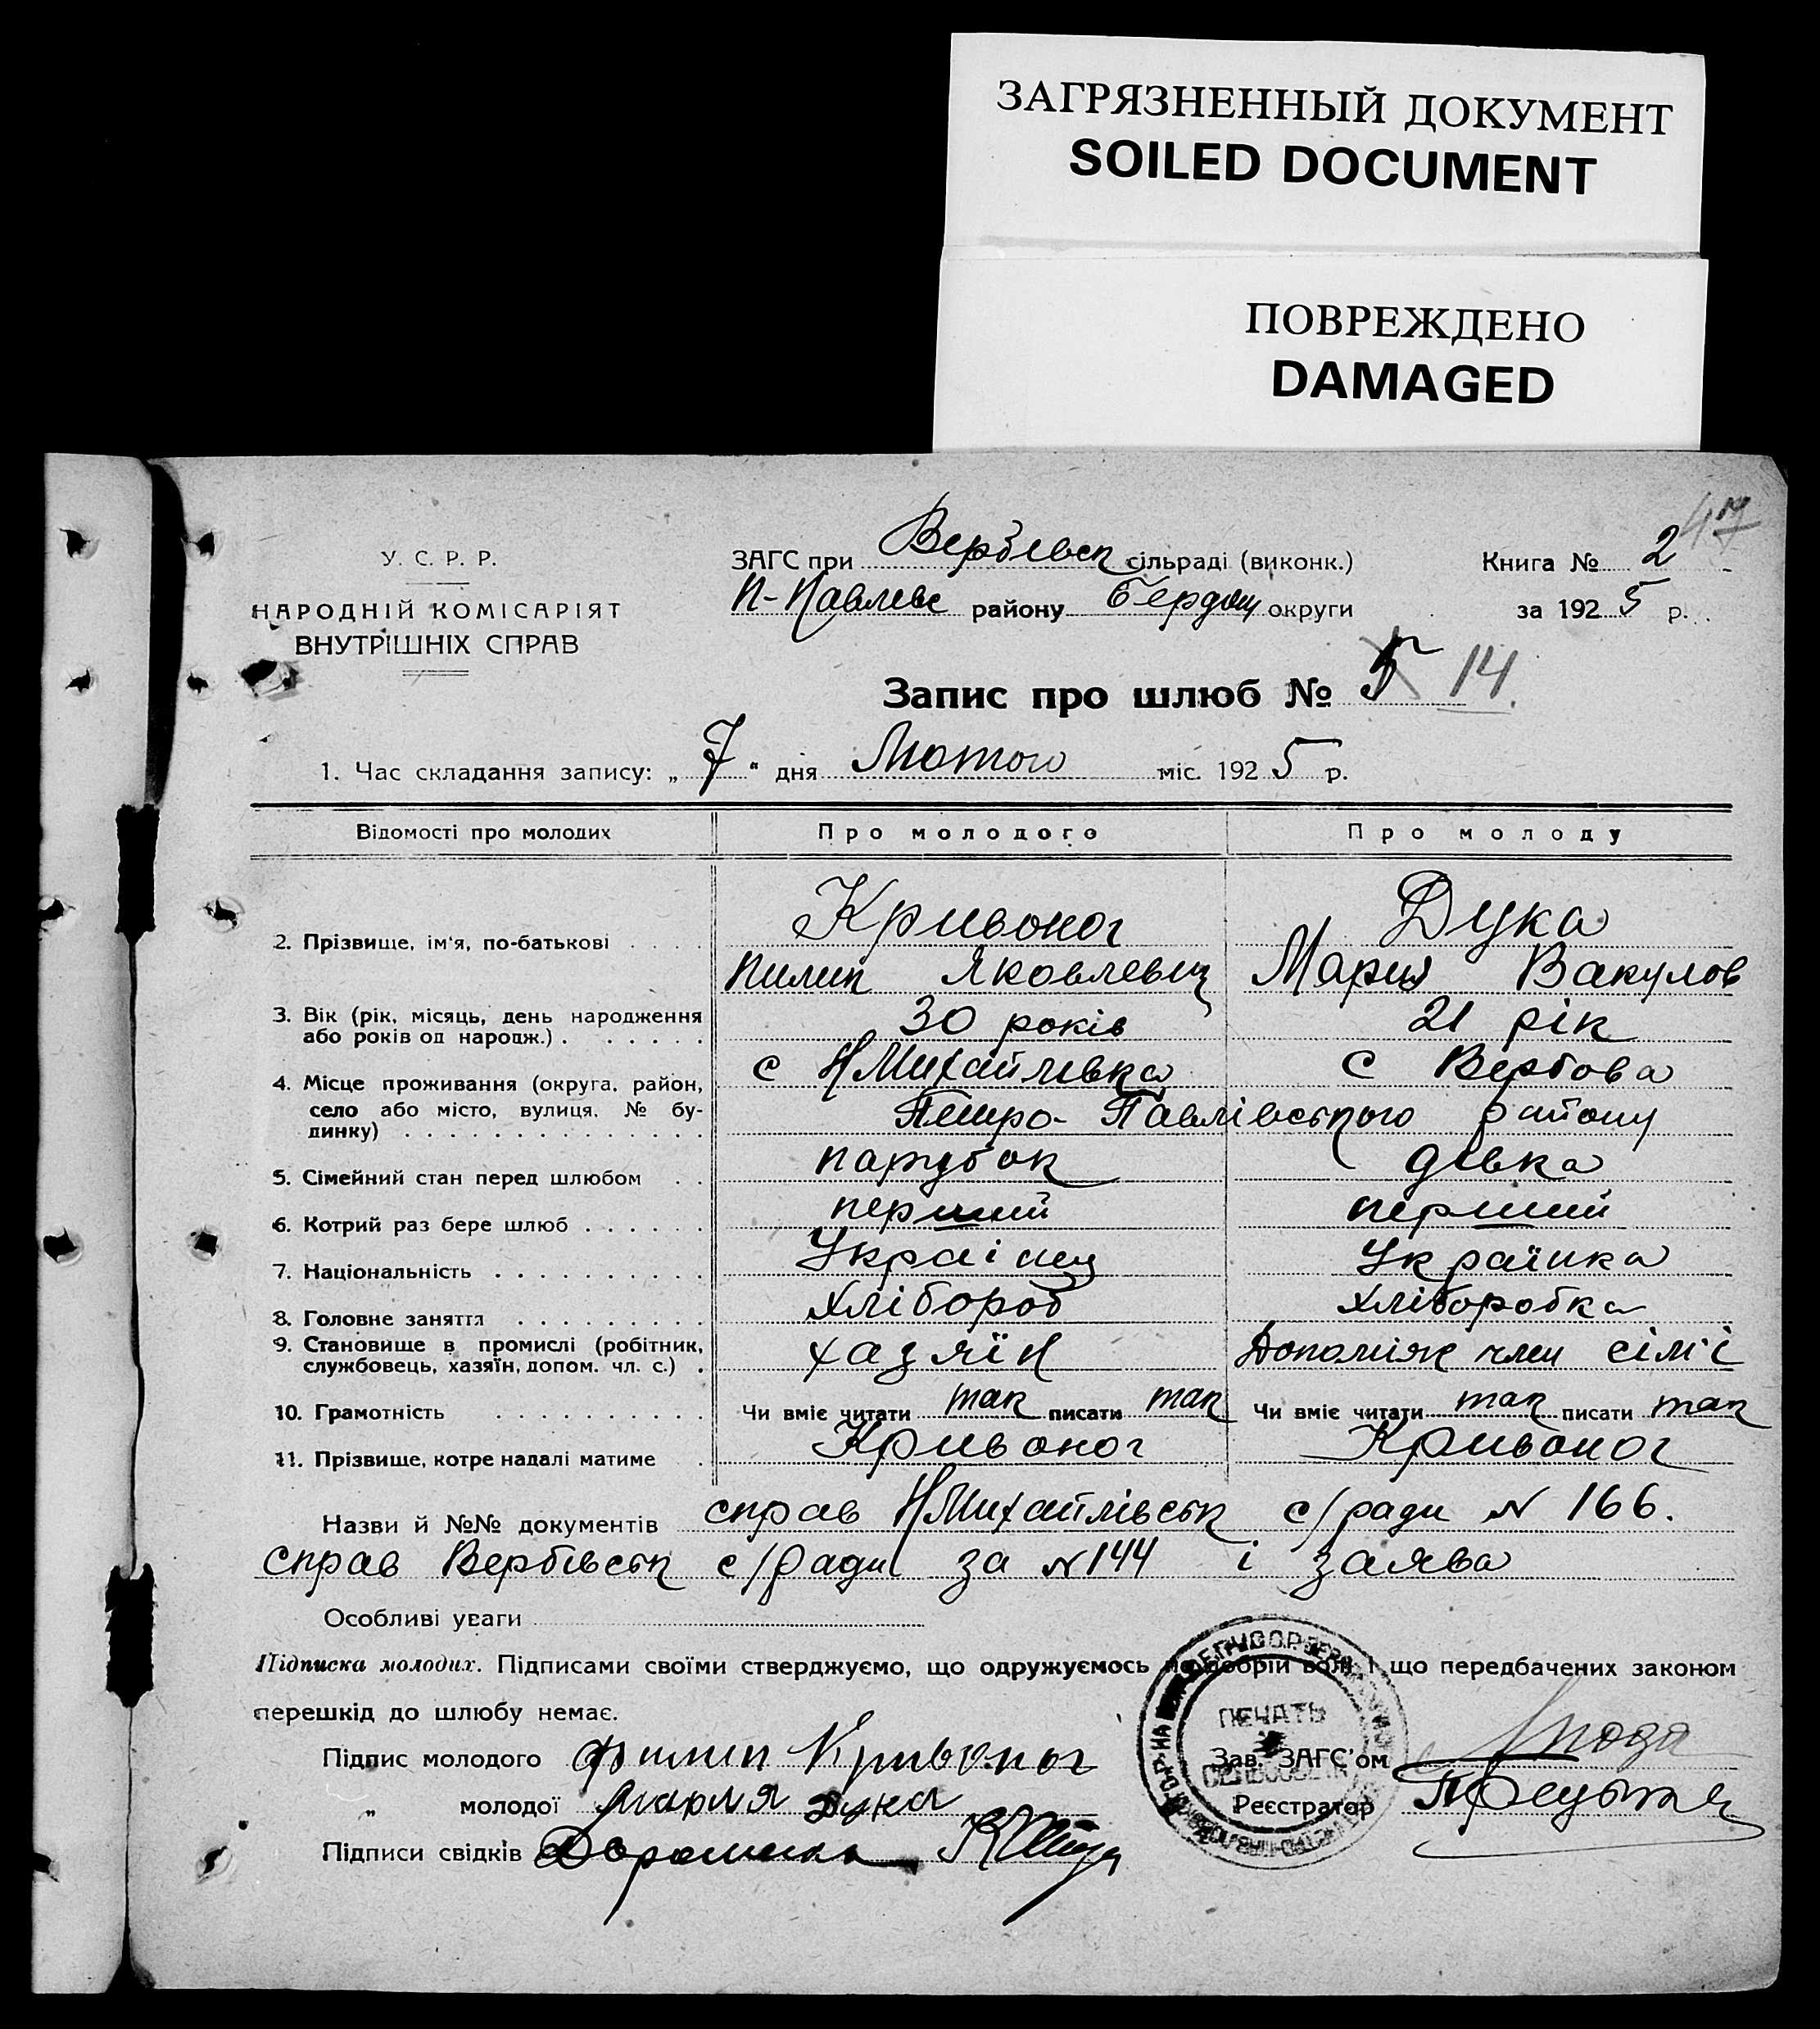 ЗАГРЯЗНЕННЫЙ ДОКУМЕНТ
SOILED DOCUMENT
ПОВРЕЖДЕНО
DAMAGED
47
У. С. Р. Р.
НАРОДНІЙ КОМІСАРІЯТ
ВНУТРІШНІХ СПРАВ
ЗАГС при Вербівськ сільраді (виконк.)
П-Павлівс району Бердян округи
Книга № 2
за 1925 р.
Запис про шлюб № 5 14
1. Час складання запису: „ 7 “ дня Лютого міс. 1925 р.
Відомості про молодих Про молодого Про молоду
2. Прізвище, ім'я, по-батькові Кривоног Дука
Пилип Яковлевич Мария Вакулов
3. Вік (рік, місяць, день народження 30 років 21 рік
або років од народж.)
4. Місце проживання (округа, район, с НМихайлівка с Вербова
село або місто, вулиця, № бу- Петро-Павлівського району
динку)
5. Сімейний стан перед шлюбом парубок дівка
6. Котрий раз бере шлюб перший перший
7. Національність Украінец Українка
8. Головне заняття хлібороб хліборобка
9. Становище в промислі (робітник, хазяїн Допоміж член сім'ї
службовець, хазяїн, допом. чл. с.)
10. Грамотність Чи вміє читати так писати так Чи вміє читати так писати так
11. Прізвище, котре надалі матиме Кривоног Кривоног
Назви й №№ документів справ НМихайлівськ с/ради № 166.
справ Вербівськ с/ради за №144 і заява
Особливі уваги
Підписка молодих. Підписами своїми стверджуємо, що одружуємось по добрій волі і що передбачених законом
перешкід до шлюбу немає.
Підпис молодого Филип Кривоног
Зав. ЗАГС'ом
„ молодої Мария Дука
Реєстратор
Підписи свідків
ПЕЧАТЬ